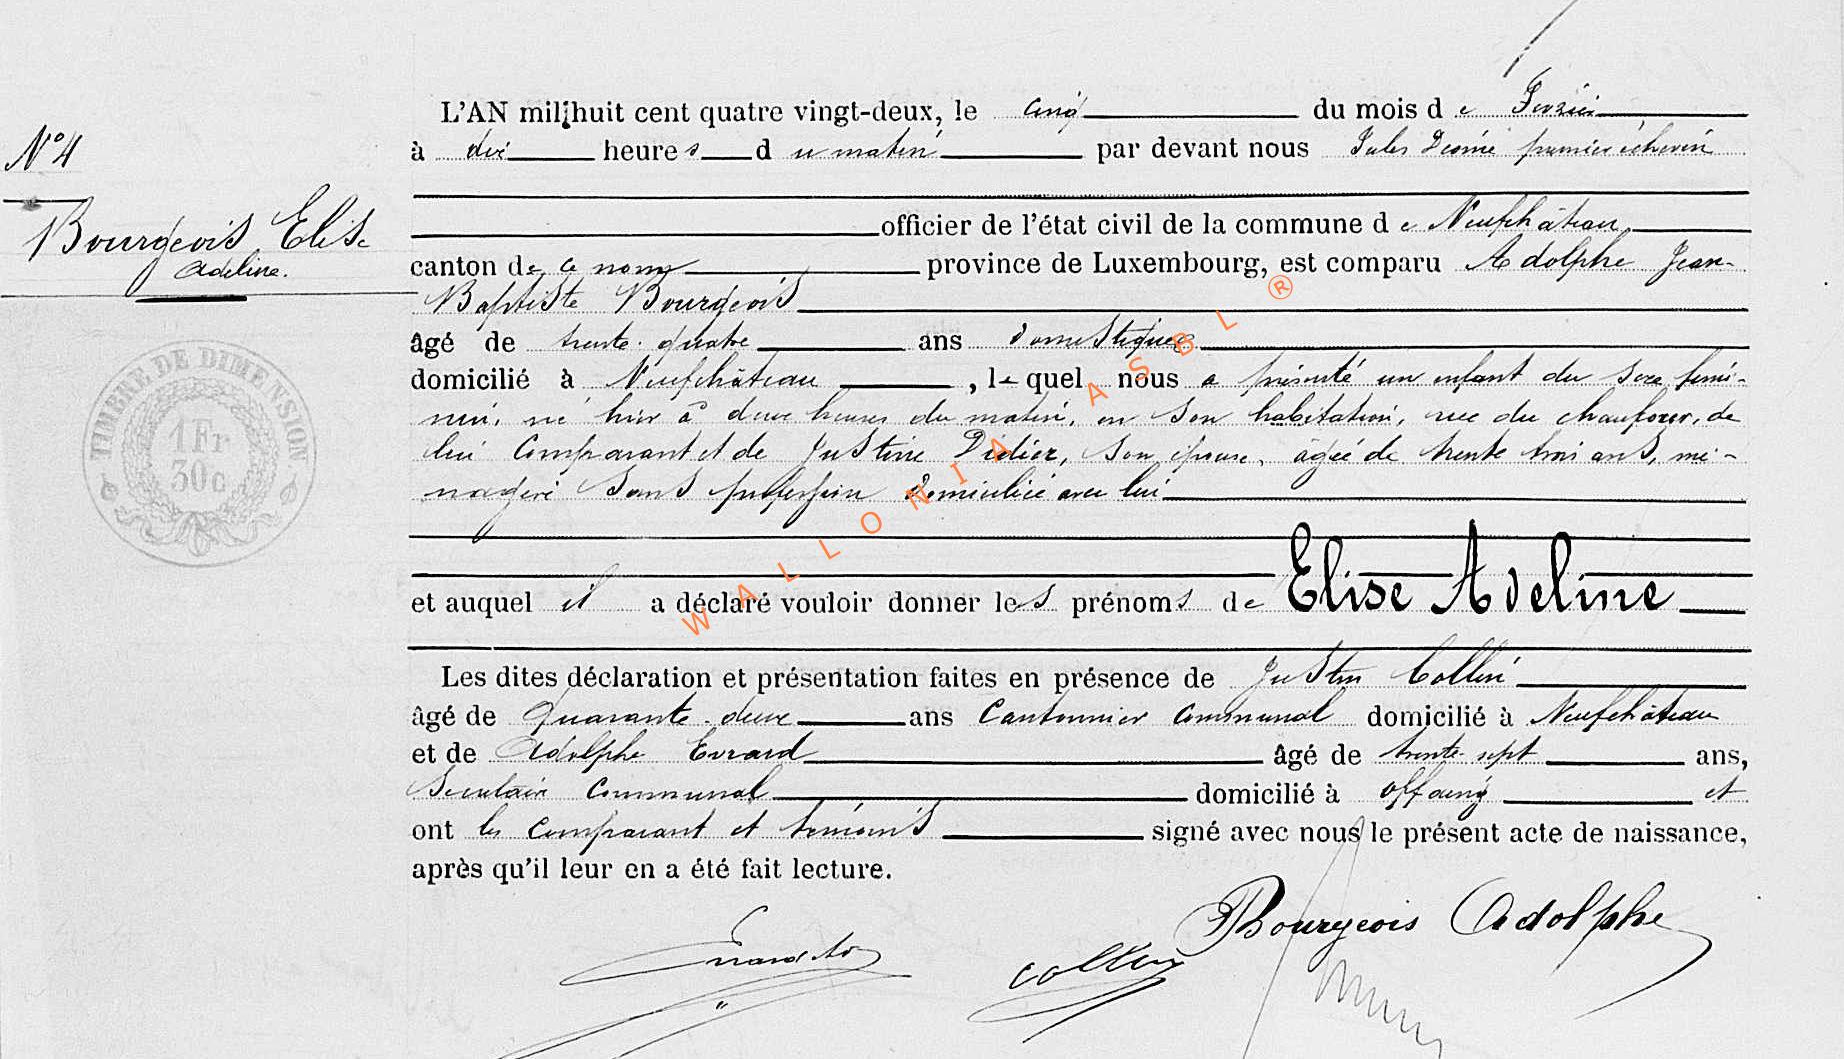 N° 4
Bourgeois Elise
Adeline.
TIMBRE DE DIMENSION
1 Fr
30c
L'AN mil huit cent quatre vingt-deux, le cinq du mois de
à dix heures du matin par devant nous Jules premier échevin
officier de l'état civil de la commune de Neufchâteau,
canton de ce nom province de Luxembourg, est comparu Adolphe Jean-
Baptiste Bourgeois
âgé de trente-quatre ans domestique
domicilié à Neufchâteau, lequel nous a présenté un enfant du sexe fémi-
nin, né hier à deux heures du matin, en son habitation, rue du chaufour, de
lui Comparant et de Justine Didier, son épouse, âgée de trente trois ans, mé-
nagère sans profession domiciliée avec lui
et auquel il a déclaré vouloir donner les prénoms de Elise Adeline
Les dites déclaration et présentation faites en présence de Justin Collin
âgé de Quarante-deux ans Cantonnier Communal domicilié à Neufchâteau
et de Adolphe Evrard âgé de trente-sept ans,
Secrétaire Communal domicilié à Offaing et
ont les Comparant et témoins signé avec nous le présent acte de naissance,
après qu'il leur en a été fait lecture.
Bourgeois Adolphe
Evrard Ad
Collin
WALLONIA ASBL ®